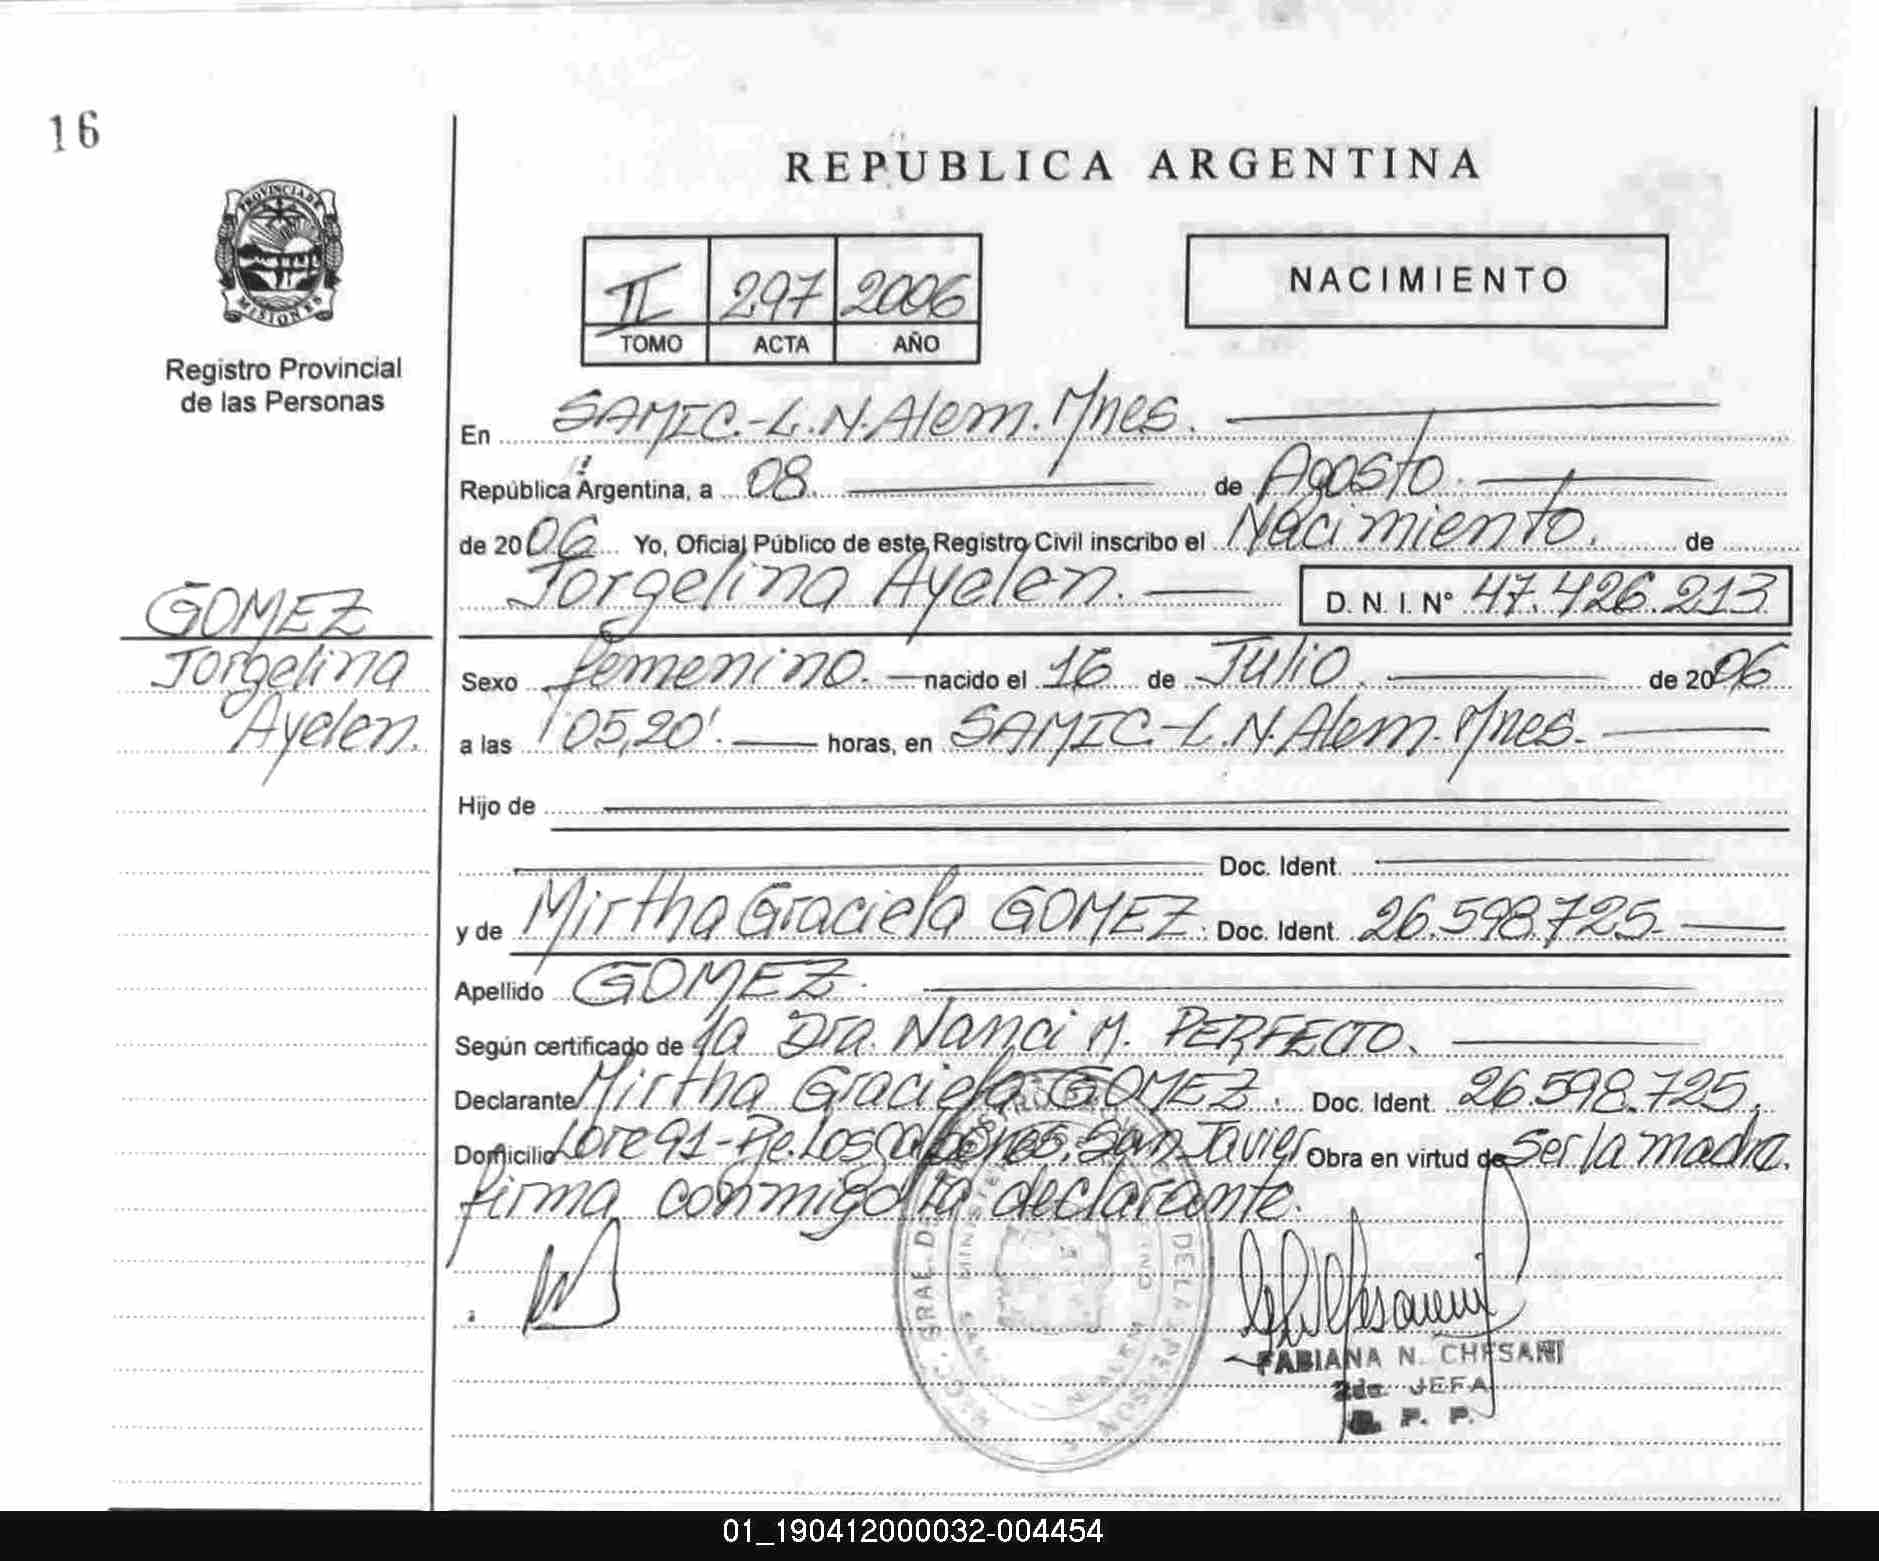 16
REPUBLICA ARGENTINA
PROVINCIA DE
MISIONES
Registro Provincial
de las Personas
II 297 2006
TOMO ACTA AÑO
NACIMIENTO
En SAMIC.-L.N.Alem.Mnes.
República Argentina, a 08. de Agosto.
de 2006 Yo, Oficial Público de este Registro Civil inscribo el Nacimiento. de
Jorgelina Ayelen. D. N. I. N° 47.426.213
GOMEZ
Jorgelina
Ayelen.
Sexo femenino. nacido el 16 de Julio. de 2006
a las 05,20'. horas, en SAMIC-L.N.Alem.Mnes.
Hijo de
Doc. Ident.
y de Mirtha Graciela GOMEZ. Doc. Ident. 26.598.725.
Apellido GOMEZ.
Según certificado de la Dra. Nanci M. PERFECTO.
Declarante Mirtha Graciela GOMEZ. Doc. Ident. 26.598.725.
Domicilio Lote 91- San Javier Obra en virtud de Ser la madre.
firma conmigo la declarante.
FABIANA N. CHESANI
2da. JEFA
R. P. P.
01_190412000032-004454